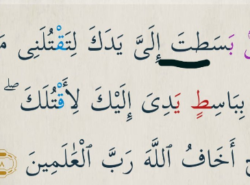 بَسَطتَ إِلَىَّ يَدَكَ لِتَقْتُلَنِى
بِبَاسِطٍ يَدِىَ إِلَيْكَ لِأَقْتُلَكَ ۖ
أَخَافُ ٱللَّهَ رَبَّ ٱلْعَٰلَمِينَ